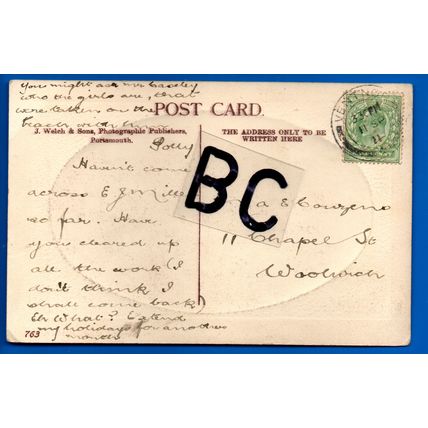 You might ask Mr
who the girls are, that
were taken on the
beach with me
POST CARD.
J. Welch & Sons, Photographic Publishers,
Portsmouth.
THE ADDRESS ONLY TO BE
WRITTEN HERE
Dolly
Haven't come
across E J Mills
so far. Have
you cleared up
all the work (I
don't think I
shall come back)
Eh What? Extend
my holidays for another
month
BC
A E Couzens
11 Chapel St
Woolwich
VENTNOR
11
763